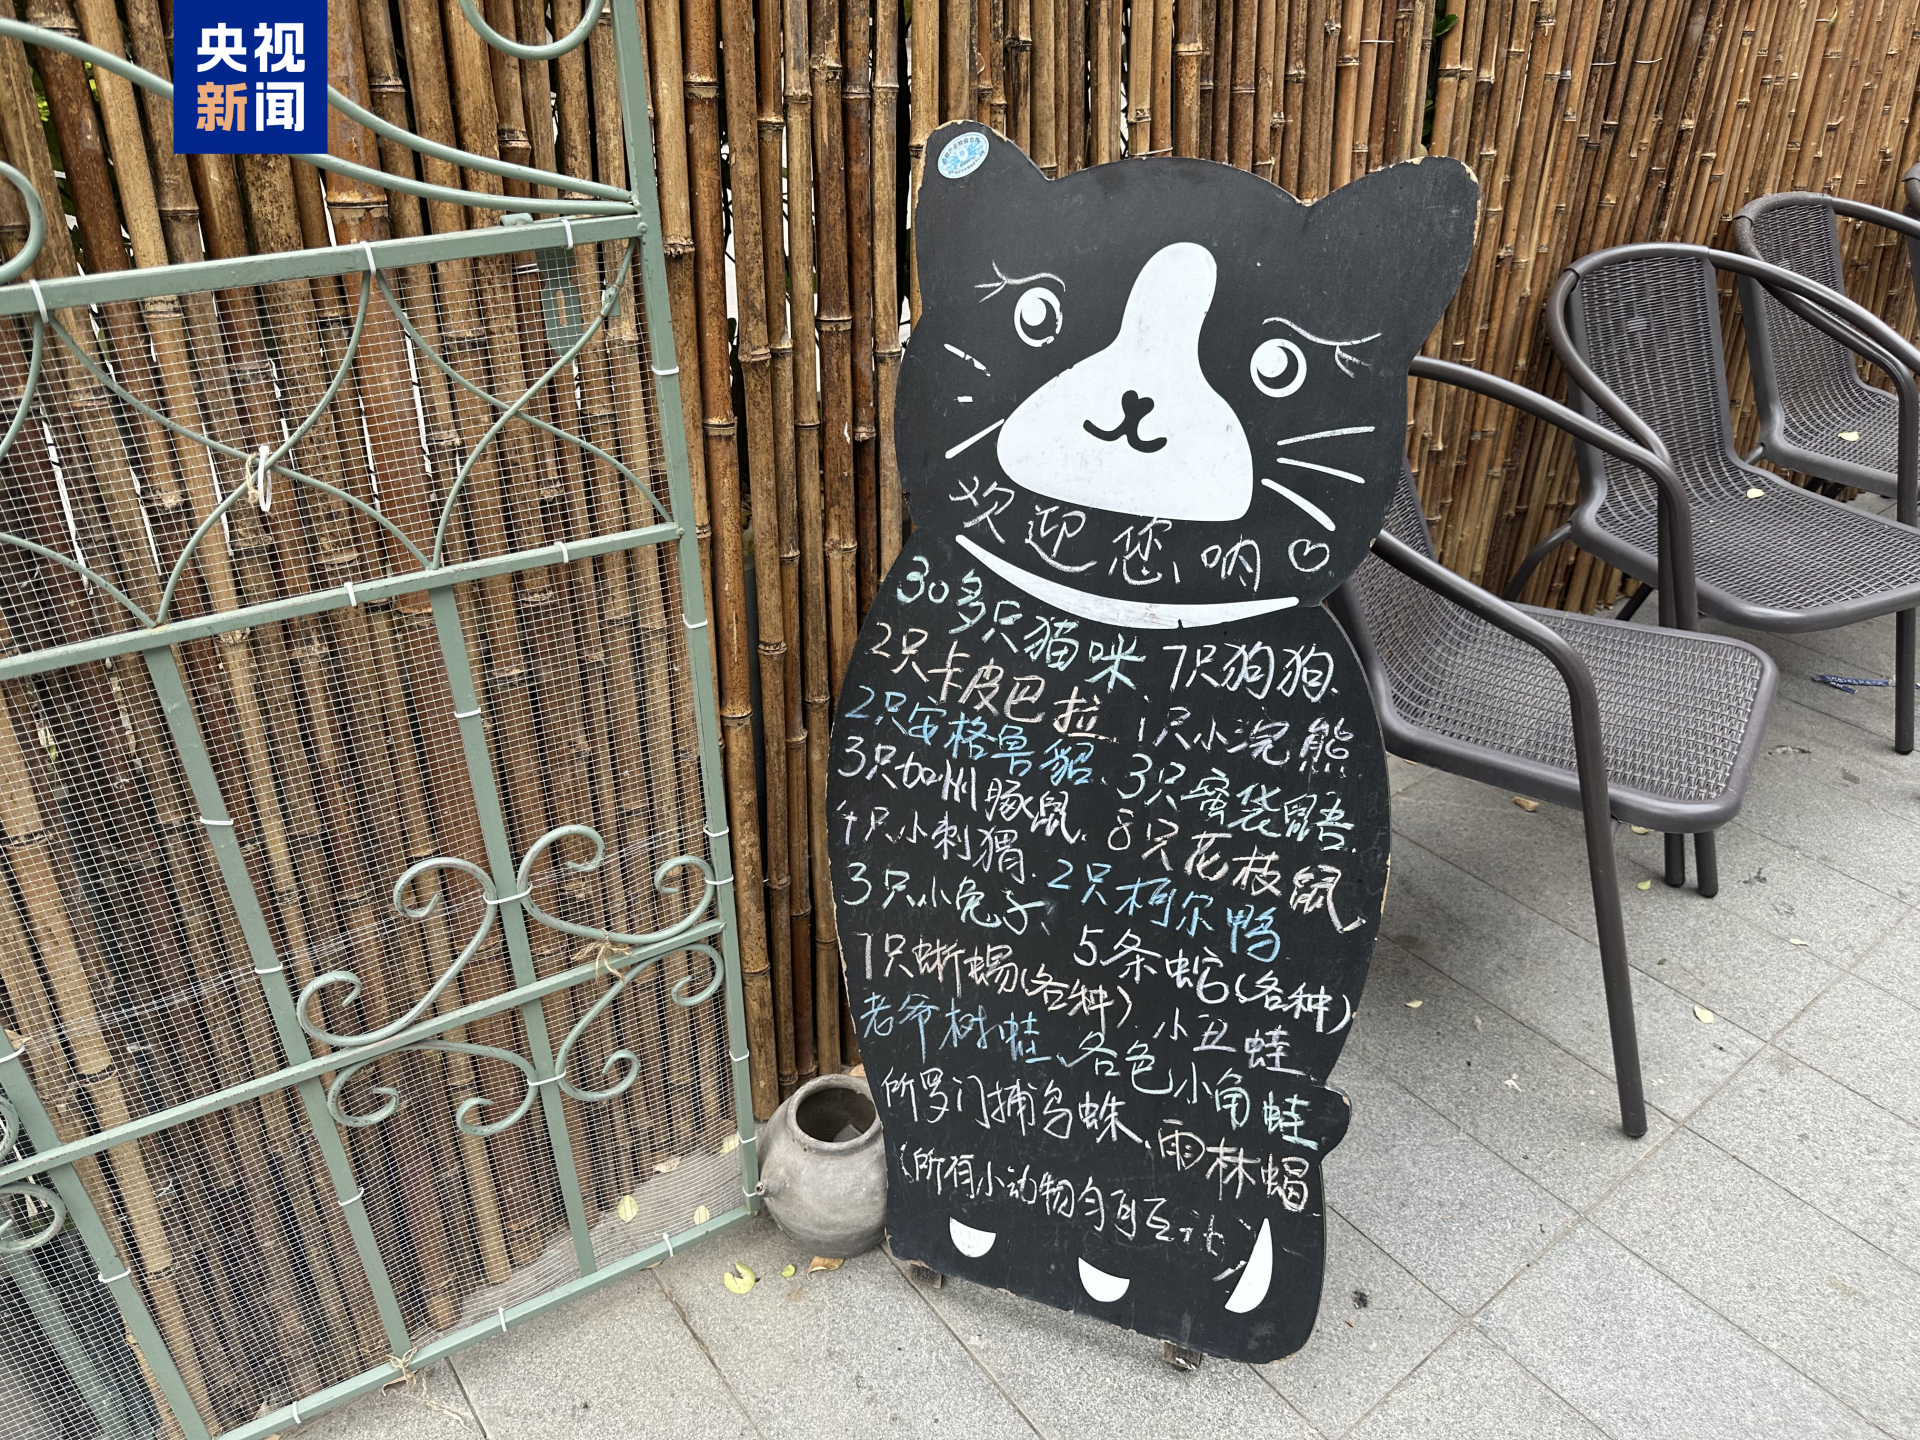 央视
新闻
欢迎您呐♡
30多只猫咪、7只狗狗、
2只卡皮巴拉、1只小浣熊
2只安格鲁貂、3只蜜袋鼯、
3只加州豚鼠、8只花枝鼠、
4只小刺猬、2只柯尔鸭
3只小兔子、5条蛇(各种)
7只蜥蜴(各种)、小丑蛙
老爷树蛙、各色小角蛙
所罗门捕鸟蛛、雨林蝎
(所有小动物匀可互动)